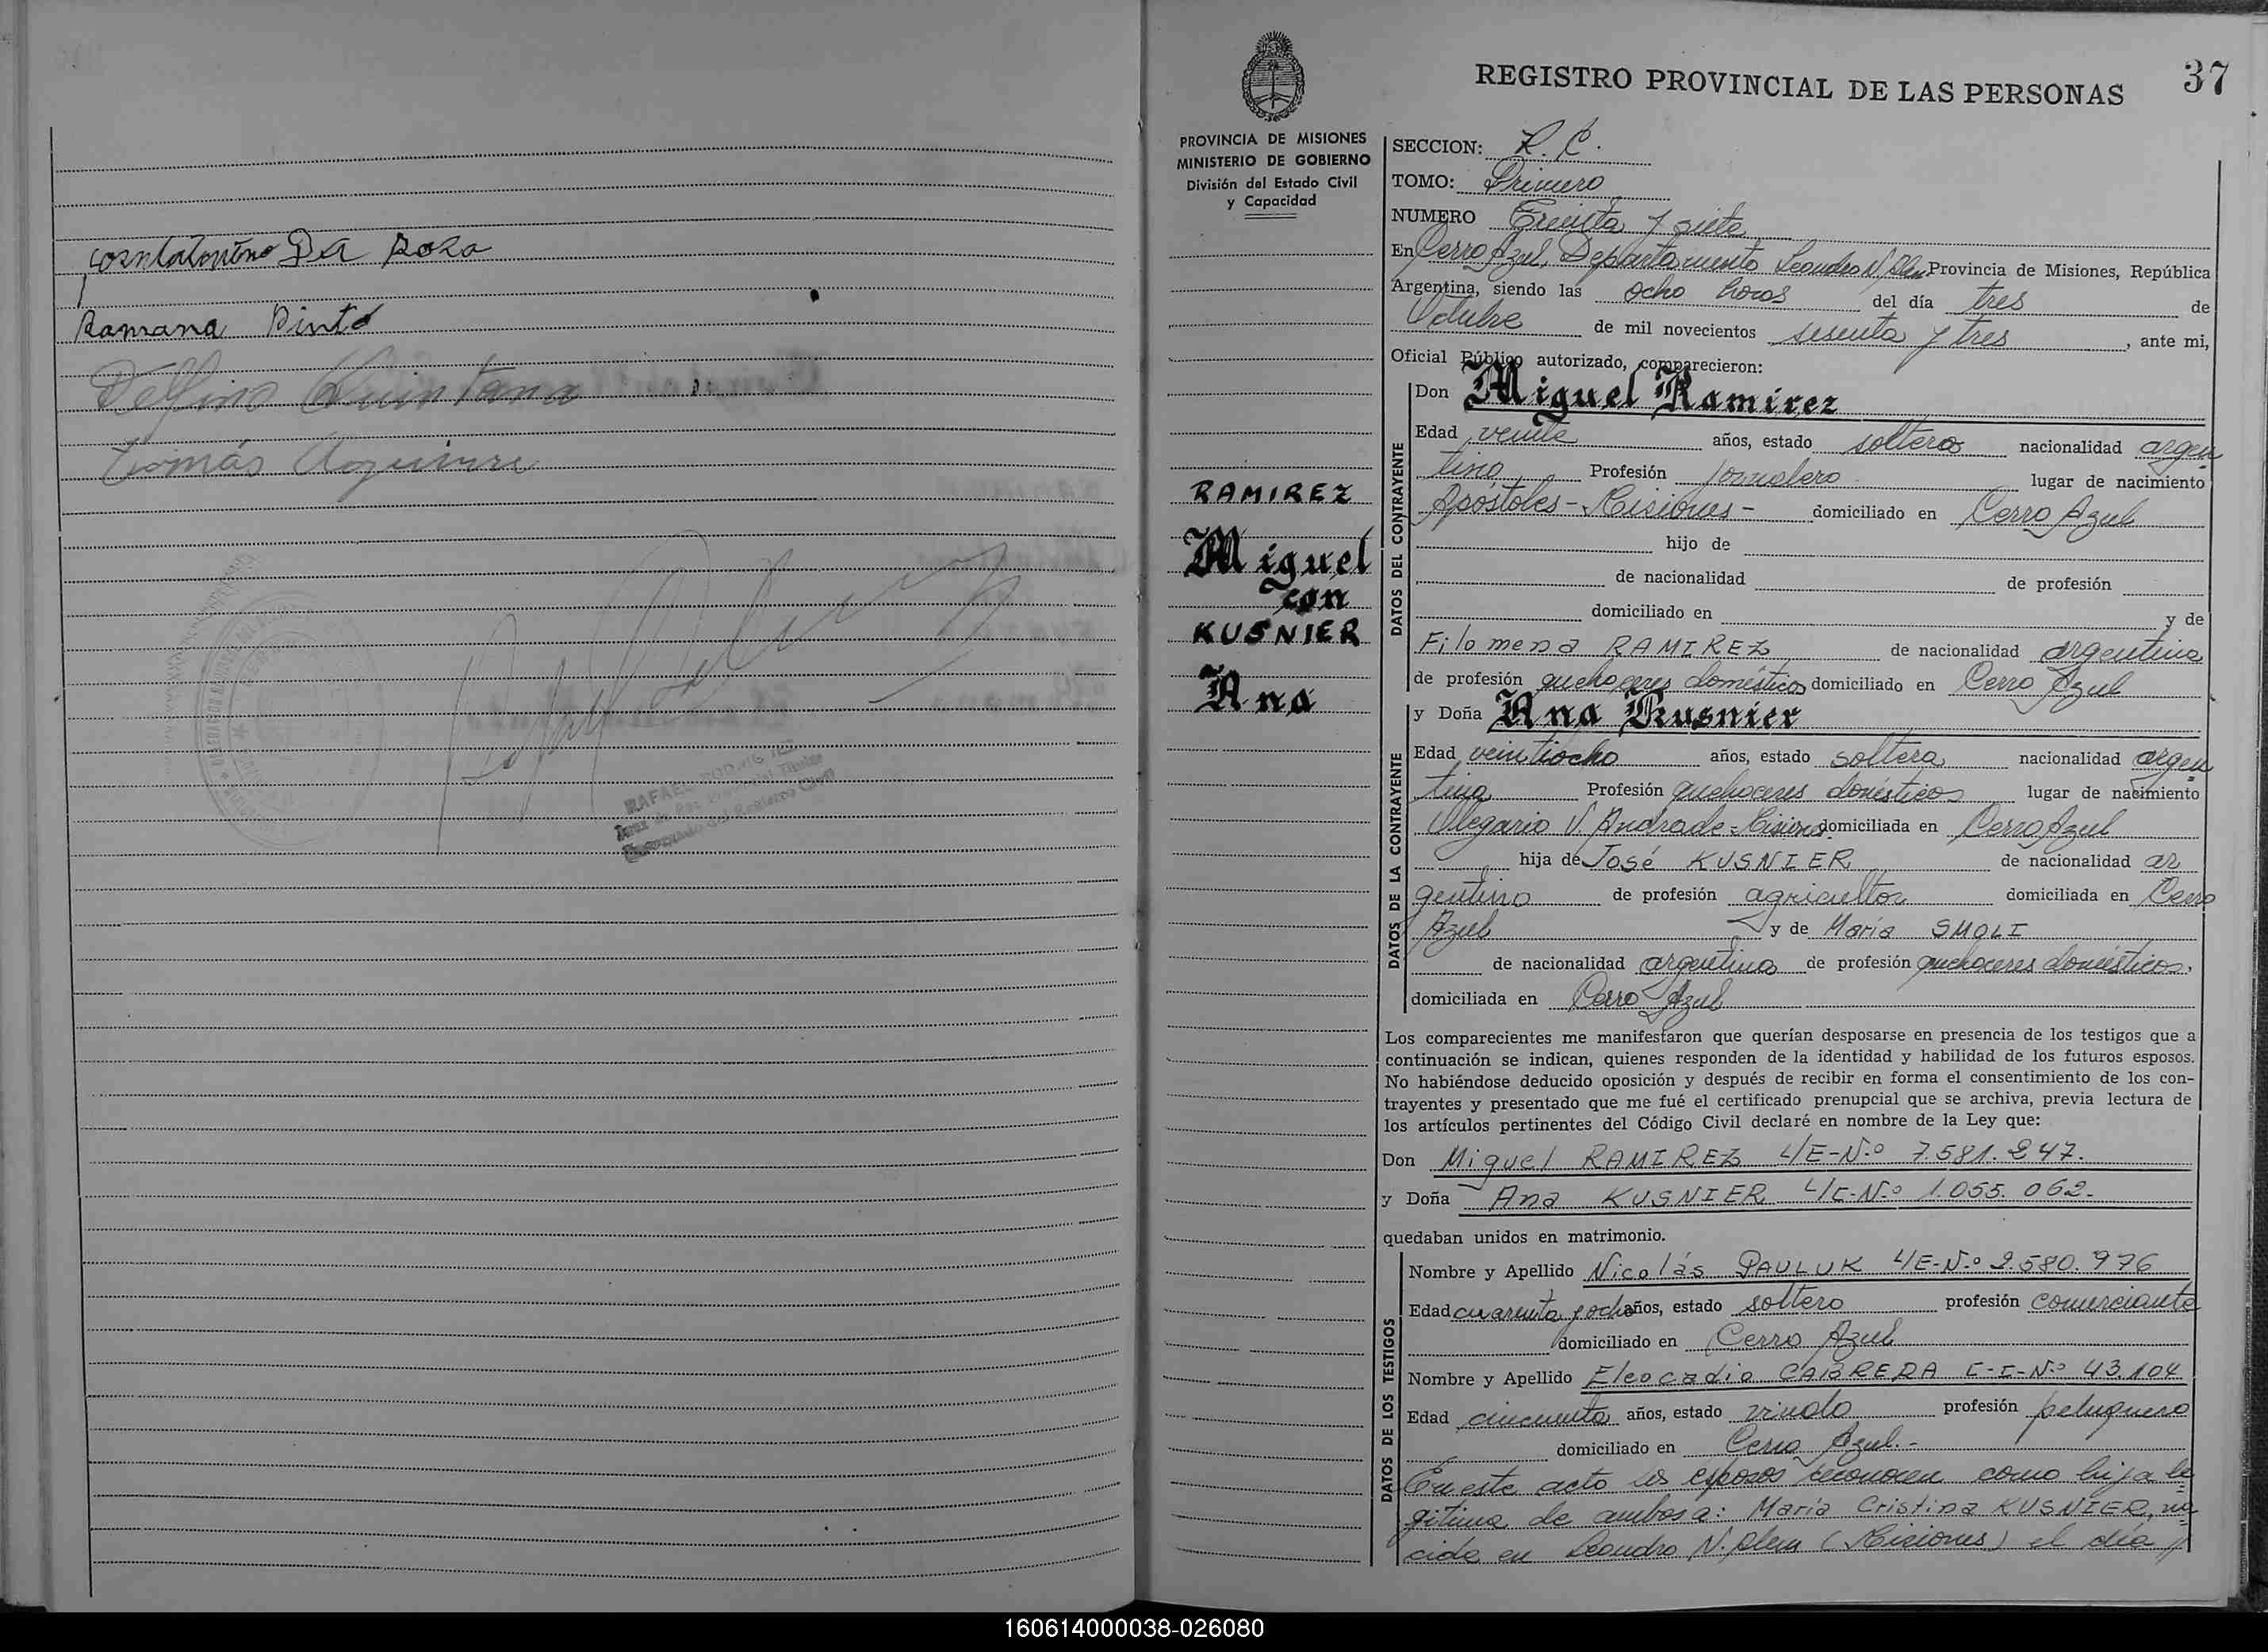 Da Rosa
Ramona Pinto
Delfino Quintana
Tomás Aguirre
RAFAEL RODRIGUEZ
Juez de Paz
Encargado del Registro Civil
37
REGISTRO PROVINCIAL DE LAS PERSONAS
PROVINCIA DE MISIONES
MINISTERIO DE GOBIERNO
División del Estado Civil
y Capacidad
RAMIREZ
Miguel
con
KUSNIER
Ana
SECCION: R. C.
TOMO: Primero
NUMERO Treinta y siete
En Cerro Azul, Departamento Leandro N. Alem Provincia de Misiones, República
Argentina, siendo las ocho horas del día tres de
Octubre de mil novecientos sesenta y tres, ante mi,
Oficial Público autorizado, comparecieron:
DATOS DEL CONTRAYENTE
Don Miguel Ramirez
Edad veinte años, estado soltero nacionalidad argen
tino Profesión jornalero lugar de nacimiento
Apóstoles - Misiones - domiciliado en Cerro Azul
hijo de
de nacionalidad de profesión
domiciliado en y de
Filomena RAMIREZ de nacionalidad argentina
de profesión quehaceres domésticos domiciliado en Cerro Azul
DATOS DE LA CONTRAYENTE
y Doña Ana Kusnier
Edad veintiocho años, estado soltera nacionalidad argen
tina Profesión quehaceres domésticos lugar de nacimiento
Olegario V. Andrade - Misiones domiciliada en Cerro Azul
hija de José KUSNIER de nacionalidad ar
gentino de profesión agricultor domiciliada en Cerro
Azul y de María SMOLI
de nacionalidad argentina de profesión quehaceres domésticos,
domiciliada en Cerro Azul
Los comparecientes me manifestaron que querían desposarse en presencia de los testigos que a
continuación se indican, quienes responden de la identidad y habilidad de los futuros esposos.
No habiéndose deducido oposición y después de recibir en forma el consentimiento de los con-
trayentes y presentado que me fué el certificado prenupcial que se archiva, previa lectura de
los artículos pertinentes del Código Civil declaré en nombre de la Ley que:
Don Miguel RAMIREZ L/E-N.º 7.581.247.
y Doña Ana KUSNIER L/C-N.º 1.055.062.-
quedaban unidos en matrimonio.
DATOS DE LOS TESTIGOS
Nombre y Apellido Nicolás PAULUK L/E-N.º 2.580.976
Edad cuarenta y ocho años, estado soltero profesión comerciante
domiciliado en Cerro Azul
Nombre y Apellido Eleocadio CABRERA C-I-N.º 43.104
Edad cincuenta años, estado viudo profesión peluquero
domiciliado en Cerro Azul.-
En este acto los esposos reconocen como hija le
gitima de ambos a: María Cristina KUSNIER, na
cida en Leandro N. Alem (Misiones) el día
160614000038-026080